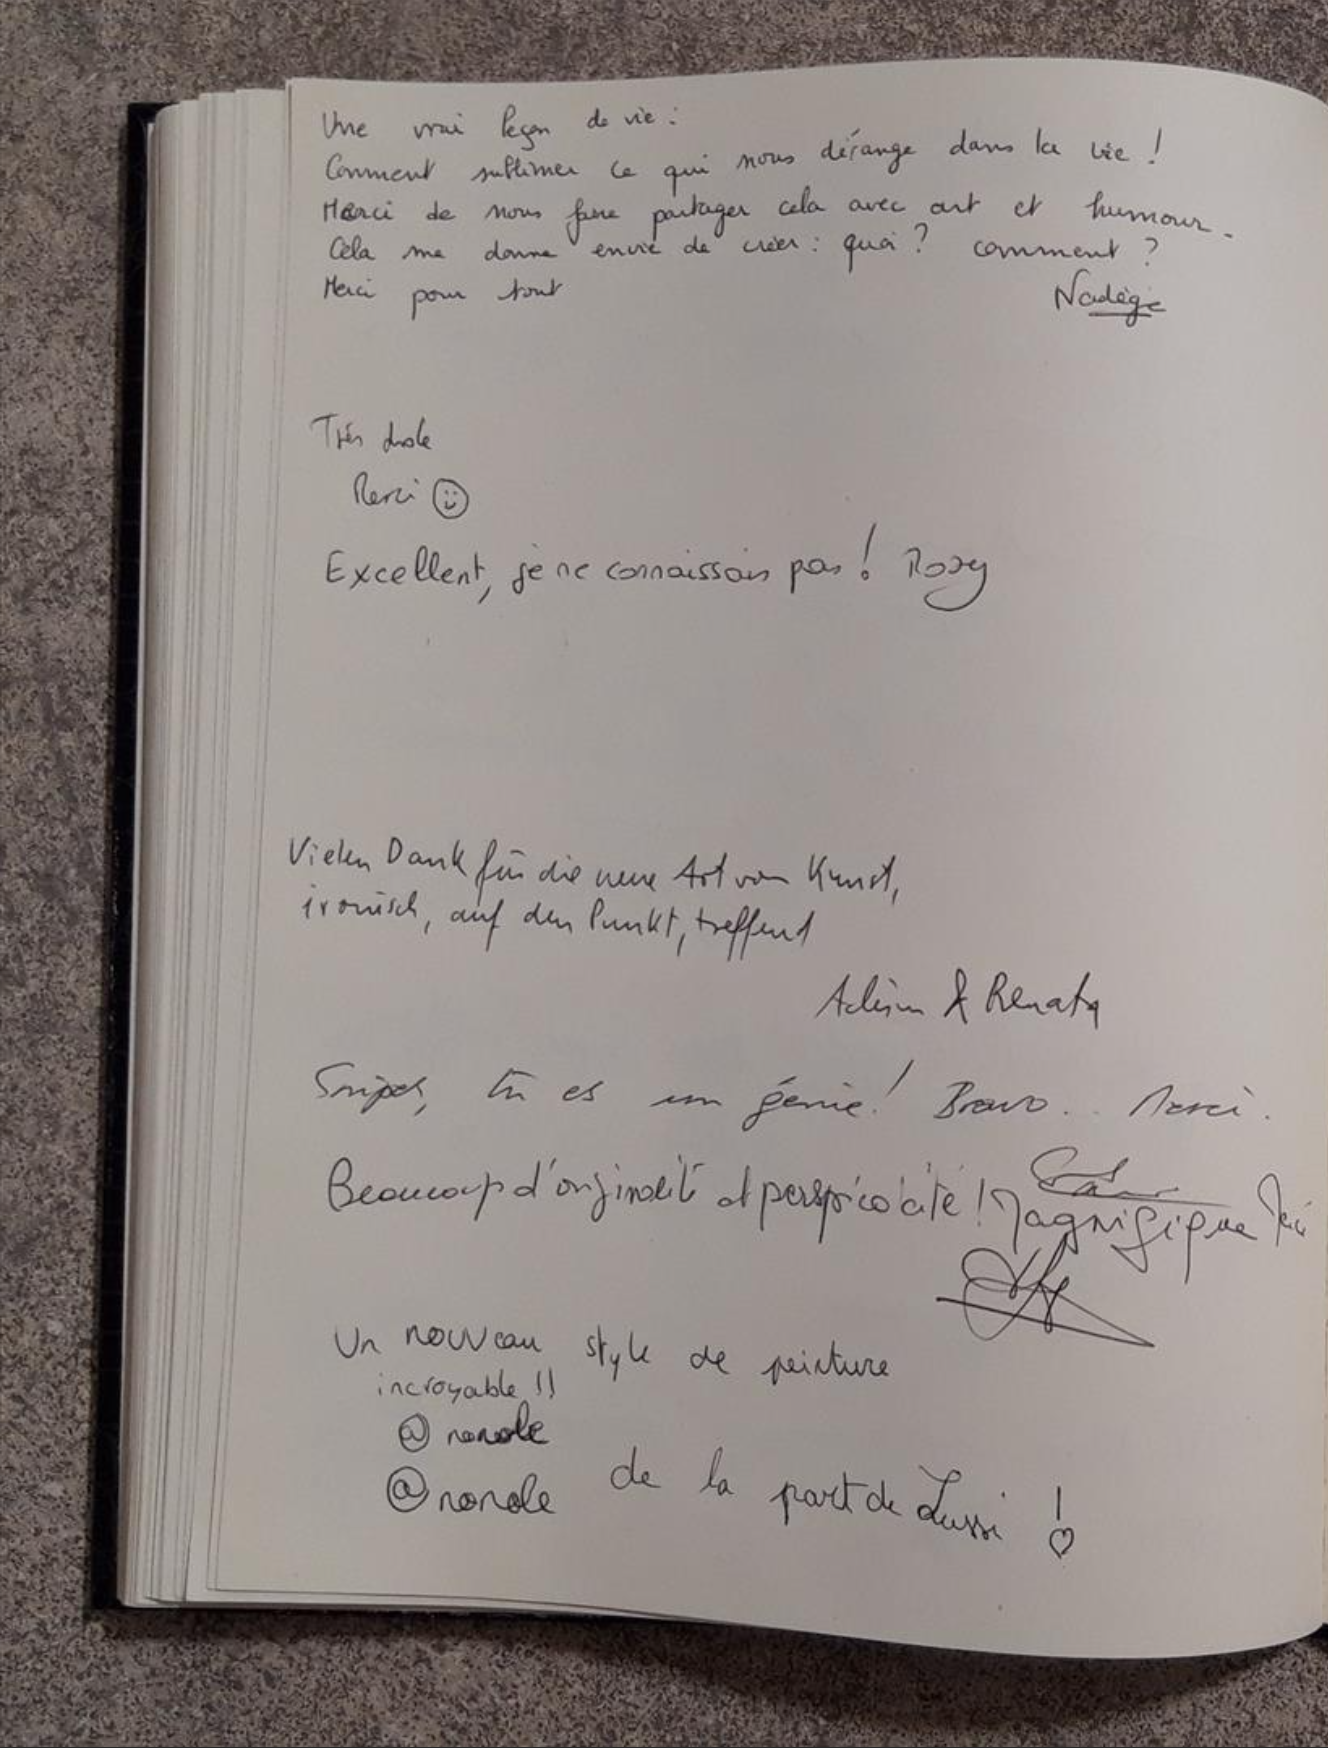 Une vrai leçon de vie :
Comment sublimer ce qui nous dérange dans la vie !
Merci de nous faire partager cela avec art et humour.
Cela me donne envie de créer : quoi ? comment ?
Merci pour tout
Nadège
Très drole
Merci ☺
Excellent, je ne connaissais pas ! Rosy
Vielen Dank für die neue Art von Kunst,
ironisch, auf den Punkt, treffend
& Renata
tu es un génie ! Bravo.. Merci.
Beaucoup d'originalité et perspicacité ! Magnifique Merci
Un nouveau style de peinture
incroyable !!
@nonole
@nonole de la part de Lussi !